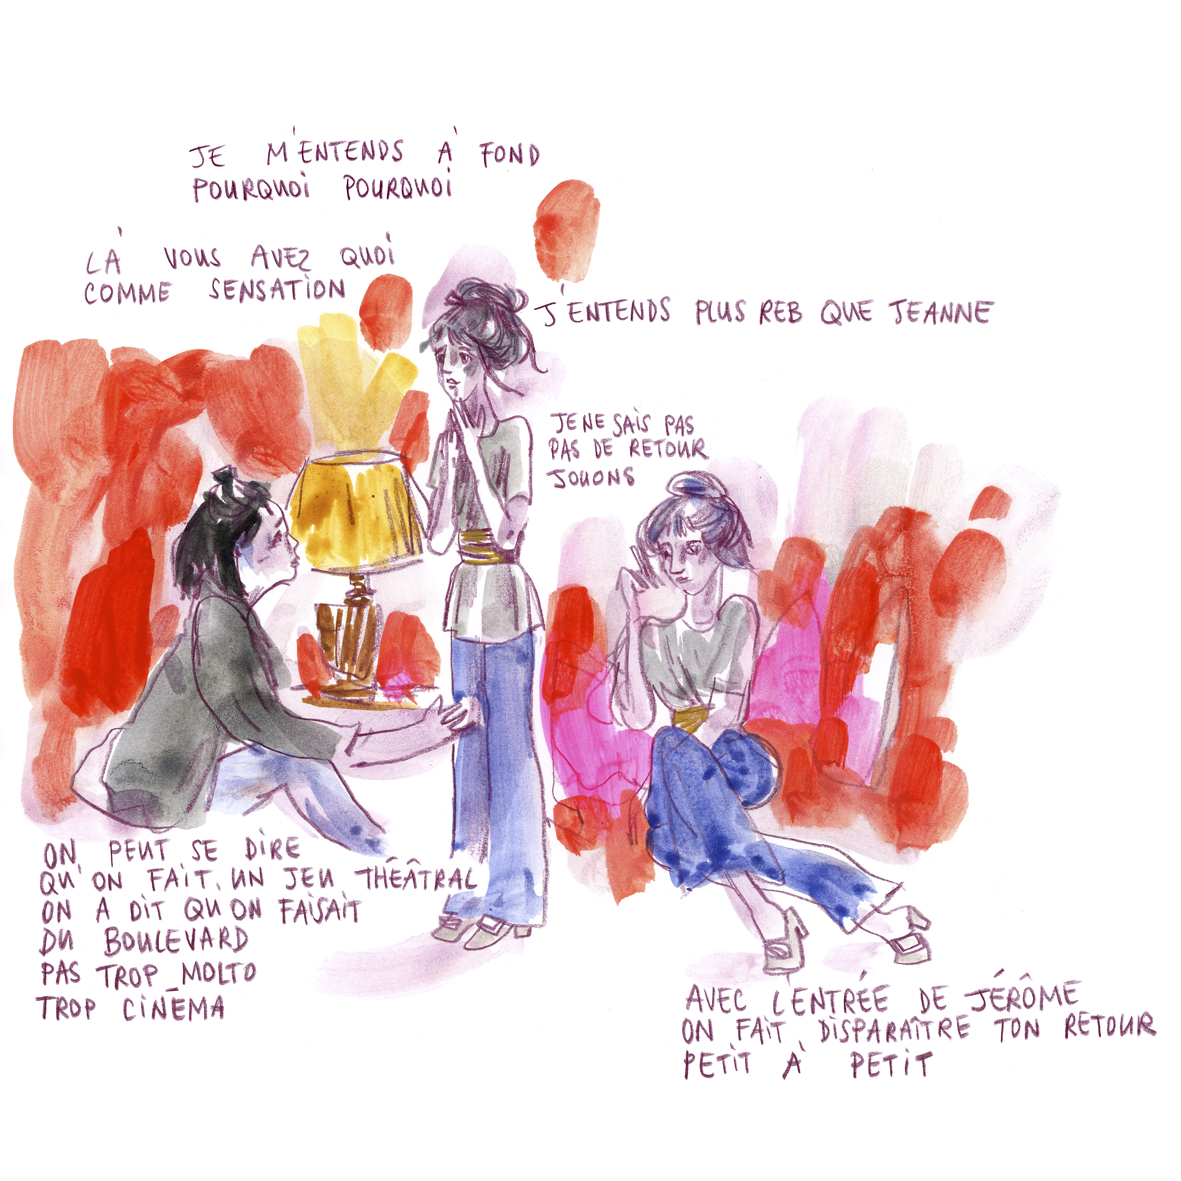 JE M'ENTENDS À FOND
POURQUOI POURQUOI
LÀ VOUS AVEZ QUOI
COMME SENSATION
J'ENTENDS PLUS REB QUE JEANNE
JE NE SAIS PAS
PAS DE RETOUR
JOUONS
ON PEUT SE DIRE
QU'ON FAIT UN JEU THÉÂTRAL
ON A DIT QU'ON FAISAIT
DU BOULEVARD
PAS TROP MOLTO
TROP CINÉMA
AVEC L'ENTRÉE DE JÉRÔME
ON FAIT DISPARAÎTRE TON RETOUR
PETIT À PETIT